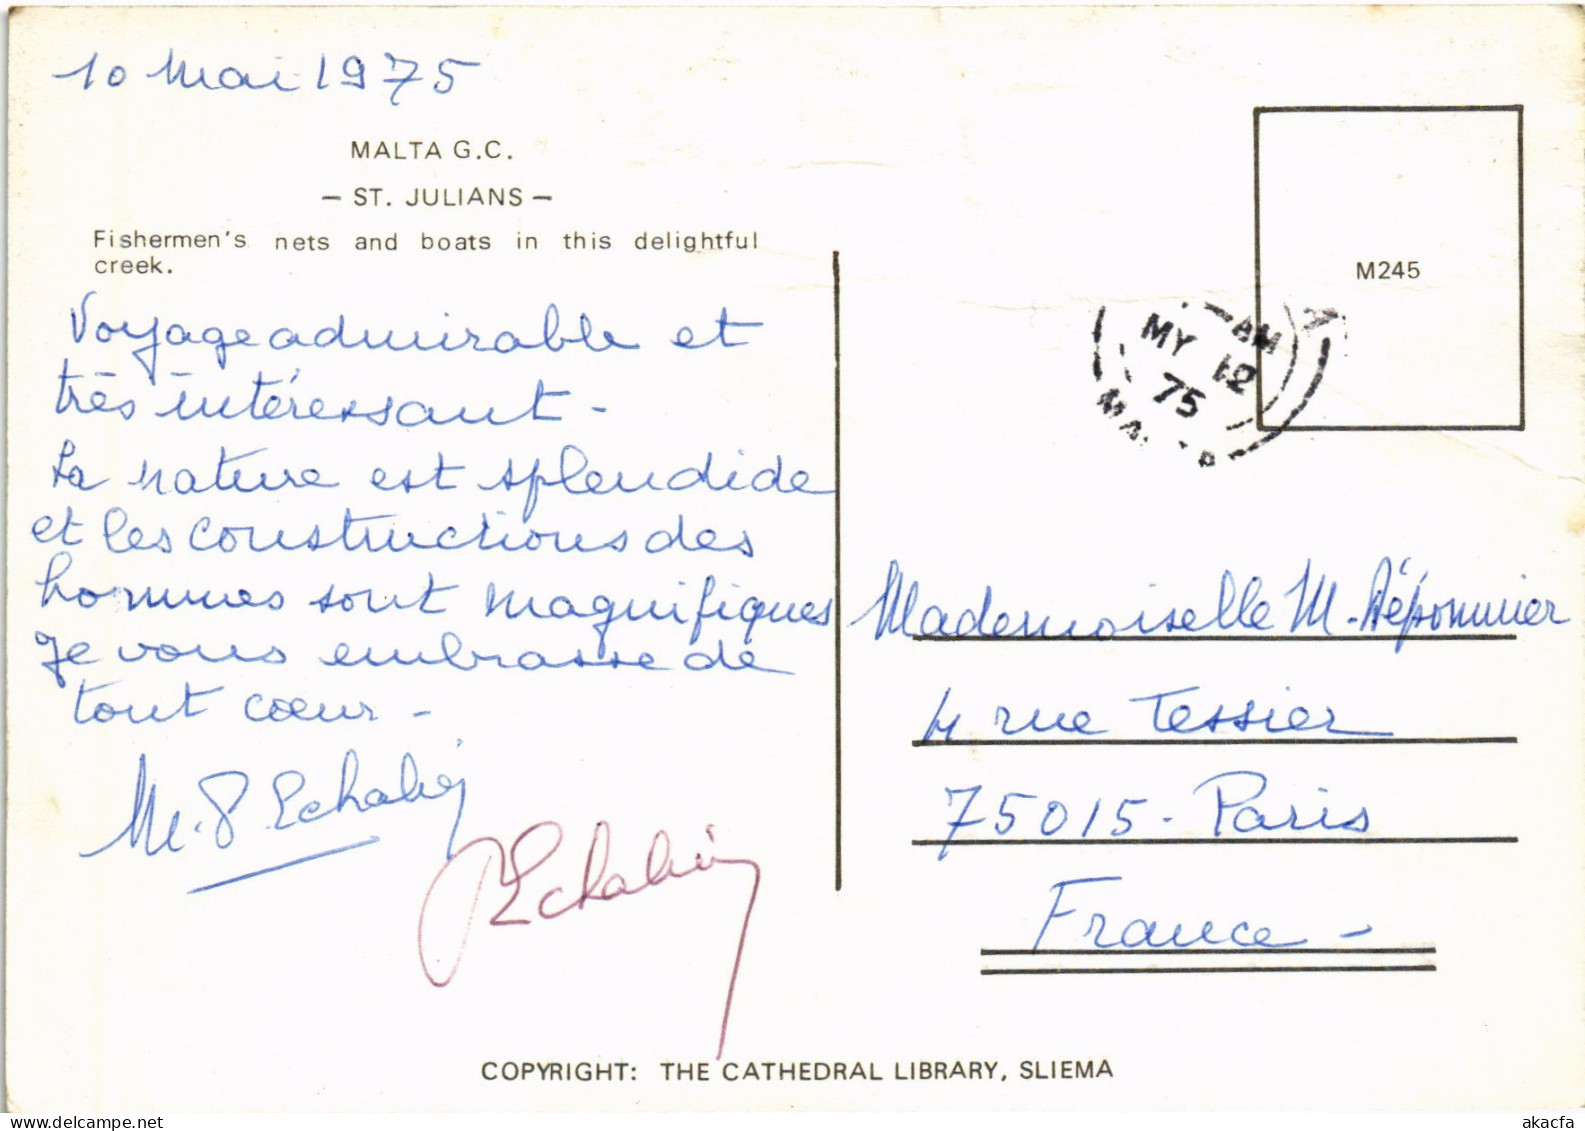 10 Mai 1975
MALTA G.C.
— ST. JULIANS —
Fishermen's nets and boats in this delightful
creek.
Voyage admirable et
très intéressant -
La nature est splendide
et les constructions des
hommes sont magnifiques
Je vous embrasse de
tout cœur -
M25
MY 12 AM
75
Mademoiselle M. Dépommier
4 rue Tessier
75015 - Paris
France -
COPYRIGHT: THE CATHEDRAL LIBRARY, SLIEMA
akacfa
delcampe.net